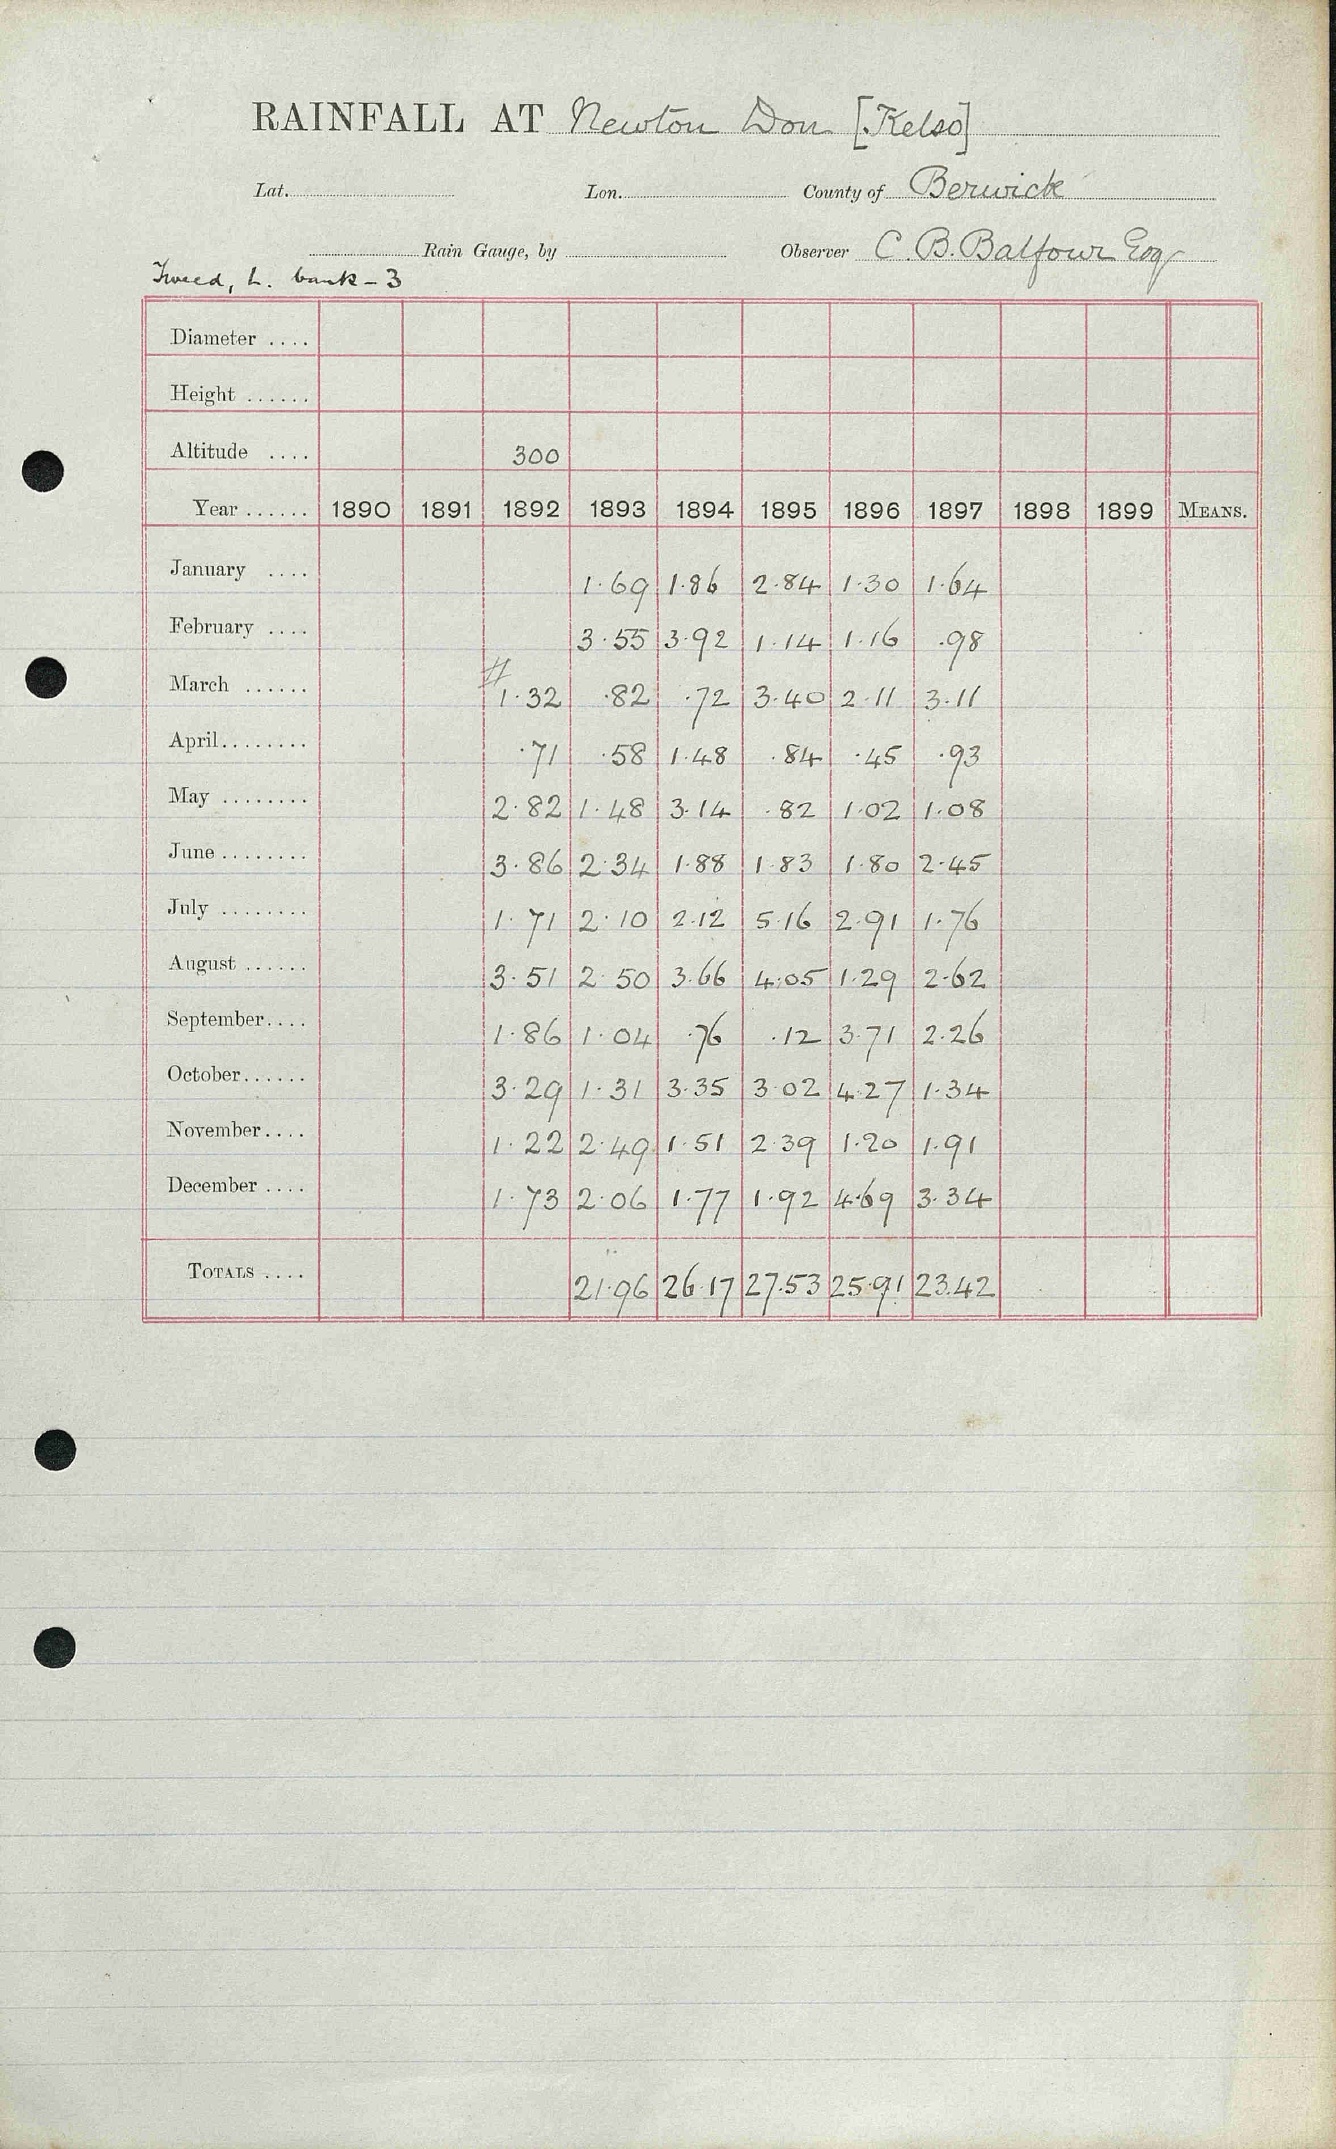 RAINFALL AT Newton Don [Kelso]
Lat. Lon. County of Berwick
Rain Gauge, by Observer C. B. Balfour Esq
Tweed, L. bank - 3
Diameter ....
Height ......
Altitude .... 300
Year ...... 1890 1891 1892 1893 1894 1895 1896 1897 1898 1899 MEANS.
January .... 1.69 1.86 2.84 1.30 1.64
February .... 3.55 3.92 1.14 1.16 .98
#
March ...... 1.32 .82 .72 3.40 2.11 3.11
April........ .71 .58 1.48 .84 .45 .93
May ........ 2.82 1.48 3.14 .82 1.02 1.08
June ........ 3.86 2.34 1.88 1.83 1.80 2.45
July ........ 1.71 2.10 2.12 5.16 2.91 1.76
August ...... 3.51 2.50 3.66 4.05 1.29 2.62
September.... 1.86 1.04 .76 .12 3.71 2.26
October...... 3.29 1.31 3.35 3.02 4.27 1.34
November.... 1.22 2.49 1.51 2.39 1.20 1.91
December .... 1.73 2.06 1.77 1.92 4.69 3.34
TOTALS .... 21.96 26.17 27.53 25.91 23.42